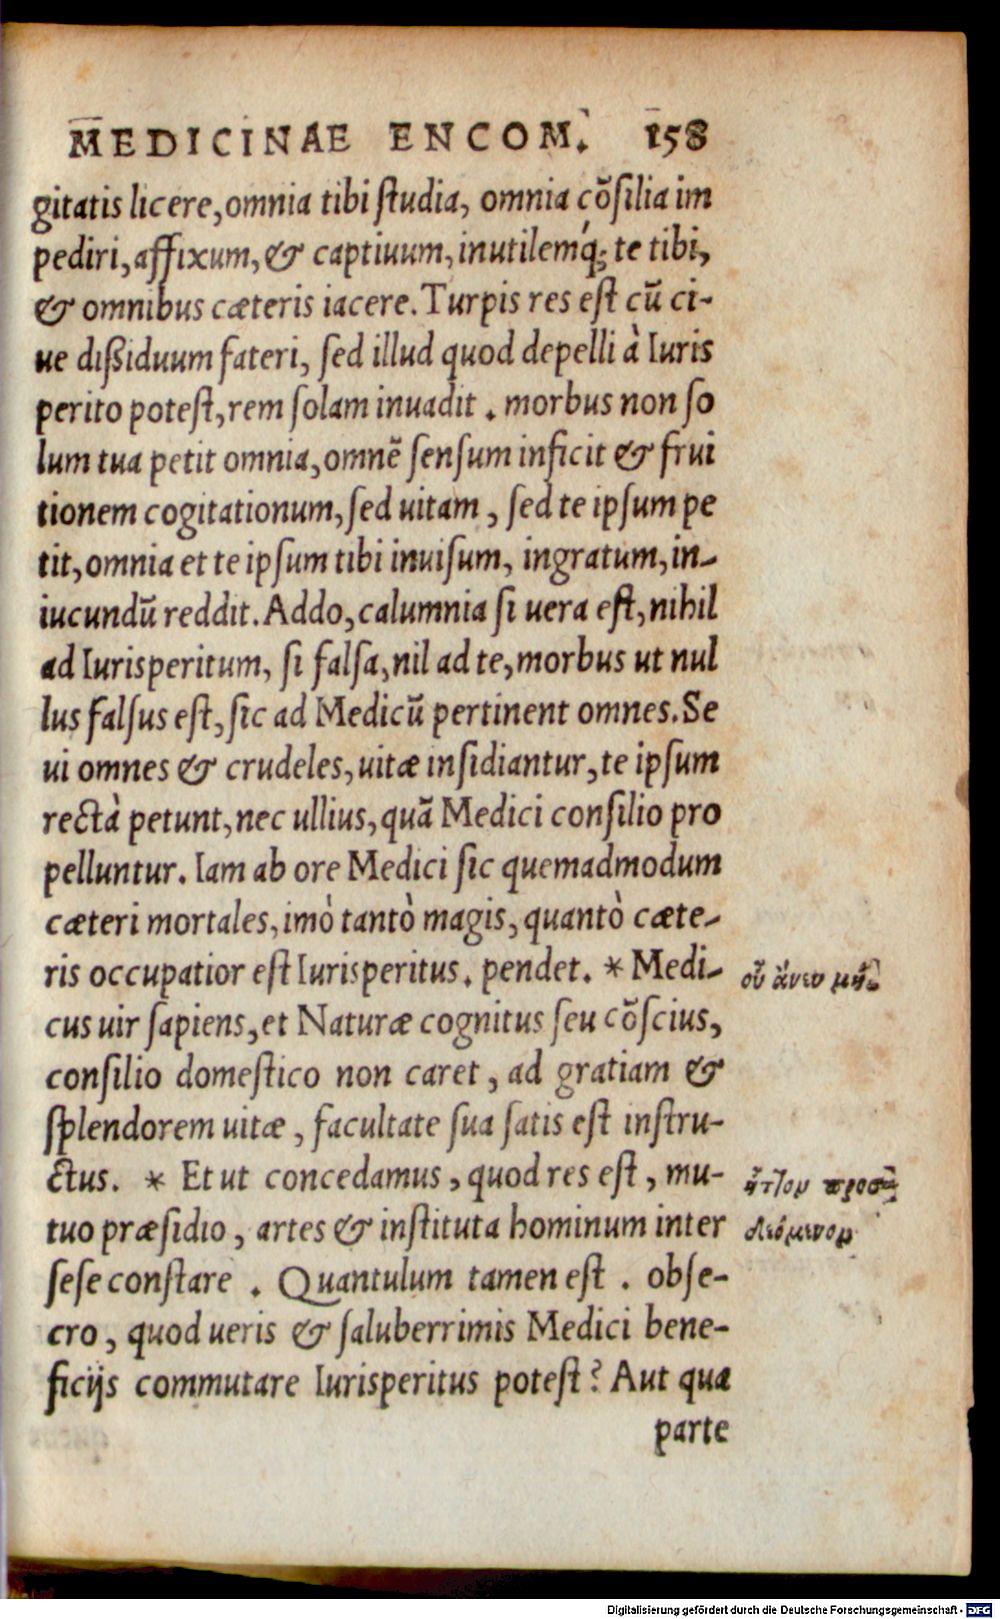 MEDICINAE ENCOM. 158
gitatis licere, omnia tibi ſtudia, omnia cõſilia im
pediri, affixum, & captiuum, inutilemq́; te tibi,
& omnibus cæteris iacere. Turpis res eſt cũ ci-
ue dißiduum fateri, ſed illud quod depelli à Iuris
perito poteſt, rem ſolam inuadit. morbus non ſo
lum tua petit omnia, omnẽ ſenſum inficit & frui
tionem cogitationum, ſed uitam, ſed te ipſum pe
tit, omnia et te ipſum tibi inuiſum, ingratum, in-
iucundũ reddit. Addo, calumnia ſi uera eſt, nihil
ad Iurisperitum, ſi falſa, nil ad te, morbus ut nul
lus falſus eſt, ſic ad Medicũ pertinent omnes. Se
ui omnes & crudeles, uitæ inſidiantur, te ipſum
rectà petunt, nec ullius, quã Medici conſilio pro
pelluntur. Iam ab ore Medici ſic quemadmodum
cæteri mortales, imò tantò magis, quantò cæte-
ris occupatior eſt Iurisperitus. pendet. * Medi-
οὐ ἄνευ
cus uir ſapiens, et Naturæ cognitus ſeu cõſcius,
conſilio domeſtico non caret, ad gratiam &
ſplendorem uitæ, facultate ſua ſatis eſt inſtru-
ctus. * Et ut concedamus, quod res eſt, mu-
ἧττον
tuo præſidio, artes & inſtituta hominum inter
ſeſe conſtare. Quantulum tamen eſt. obſe-
cro, quod ueris & ſaluberrimis Medici bene-
ficijs commutare Iurisperitus poteſt? Aut qua
parte
Digitalisierung gefördert durch die Deutsche Forschungsgemeinschaft - DFG